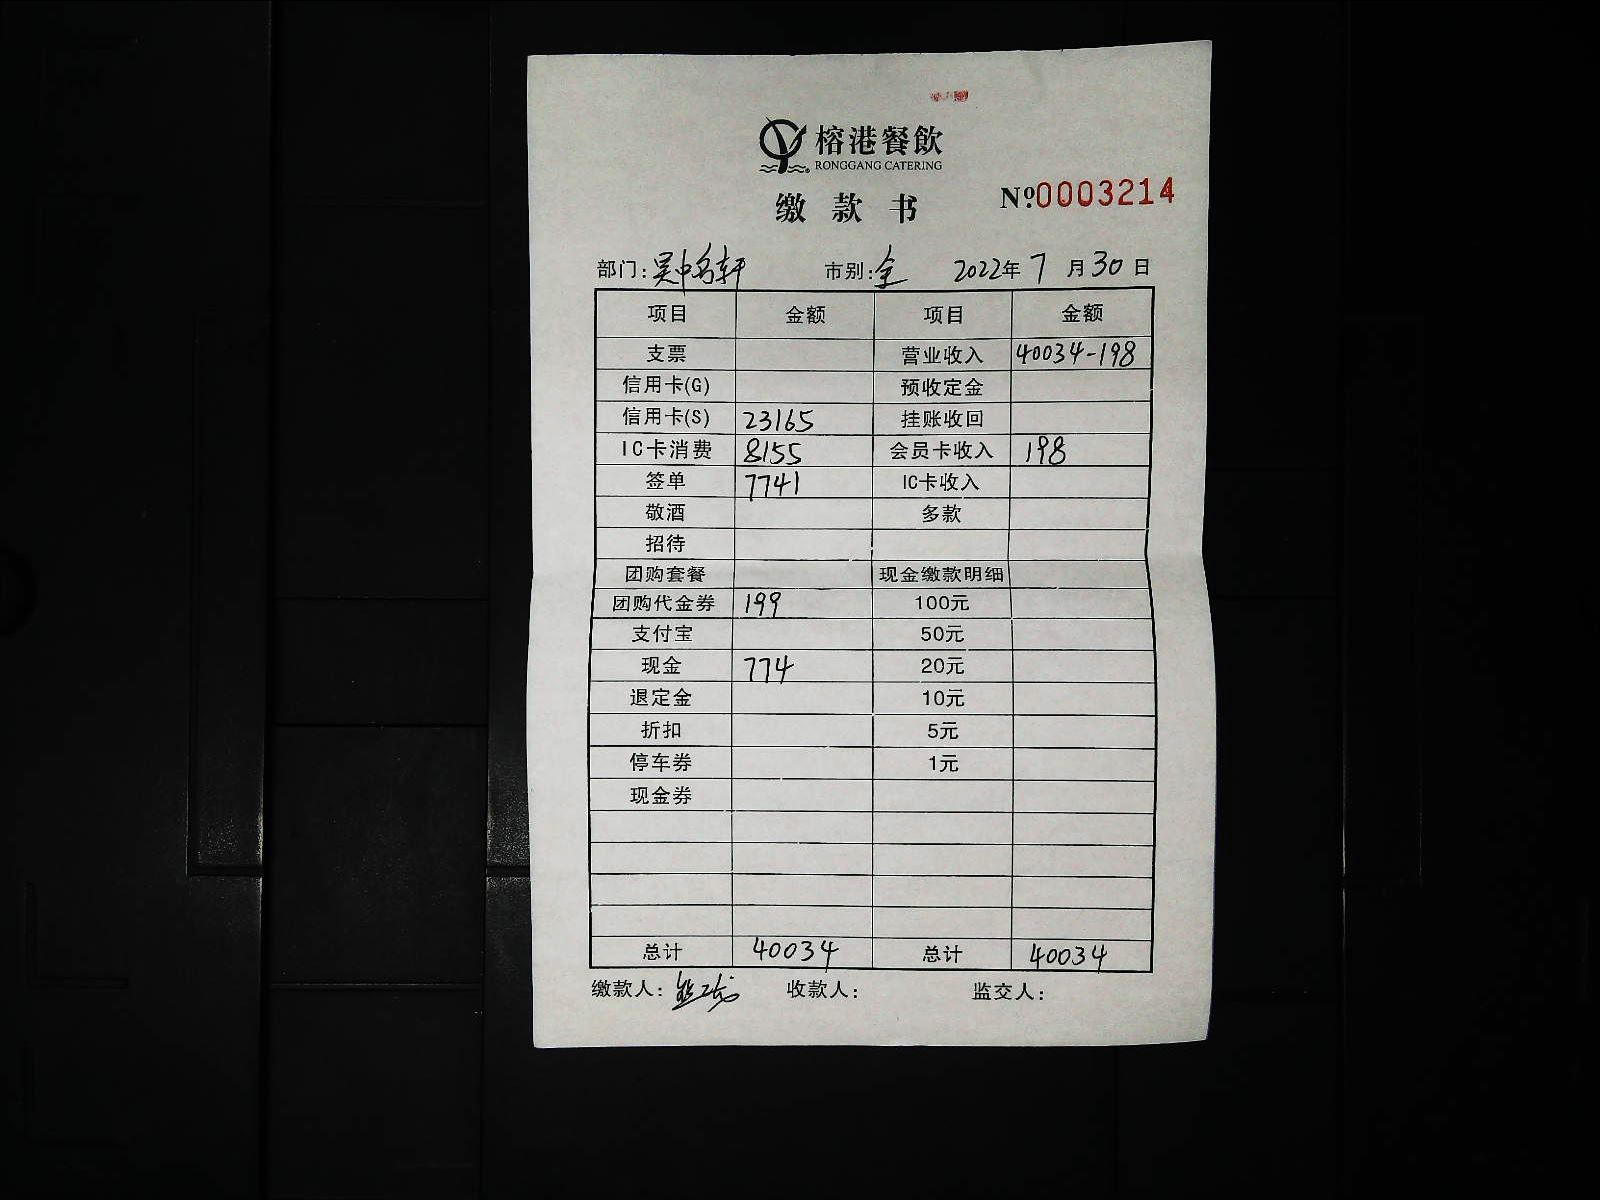 榕港餐飲
RONGGANG CATERING
缴款书 №0003214
部门：吴中名轩 市别：全 2022年7月30日
项目 金额 项目 金额
支票 营业收入 40034-198
信用卡(G) 预收定金
信用卡(S) 23165 挂账收回
IC卡消费 8155 会员卡收入 198
签单 7741 IC卡收入
敬酒 多款
招待
团购套餐 现金缴款明细
团购代金券 199 100元
支付宝 50元
现金 774 20元
退定金 10元
折扣 5元
停车券 1元
现金券
总计 40034 总计 40034
缴款人： 收款人： 监交人：